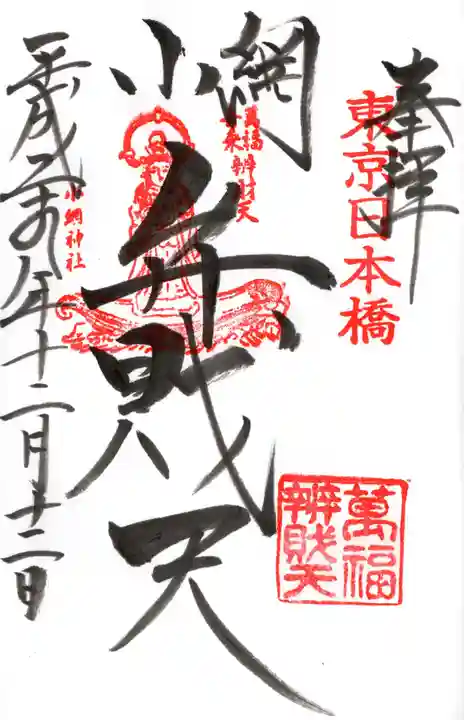 奉拝
東京日本橋
小網
弁戝天
萬福
舟乗辨財天
萬福
辨戝天
小網神社
平成二十九年十二月十二日